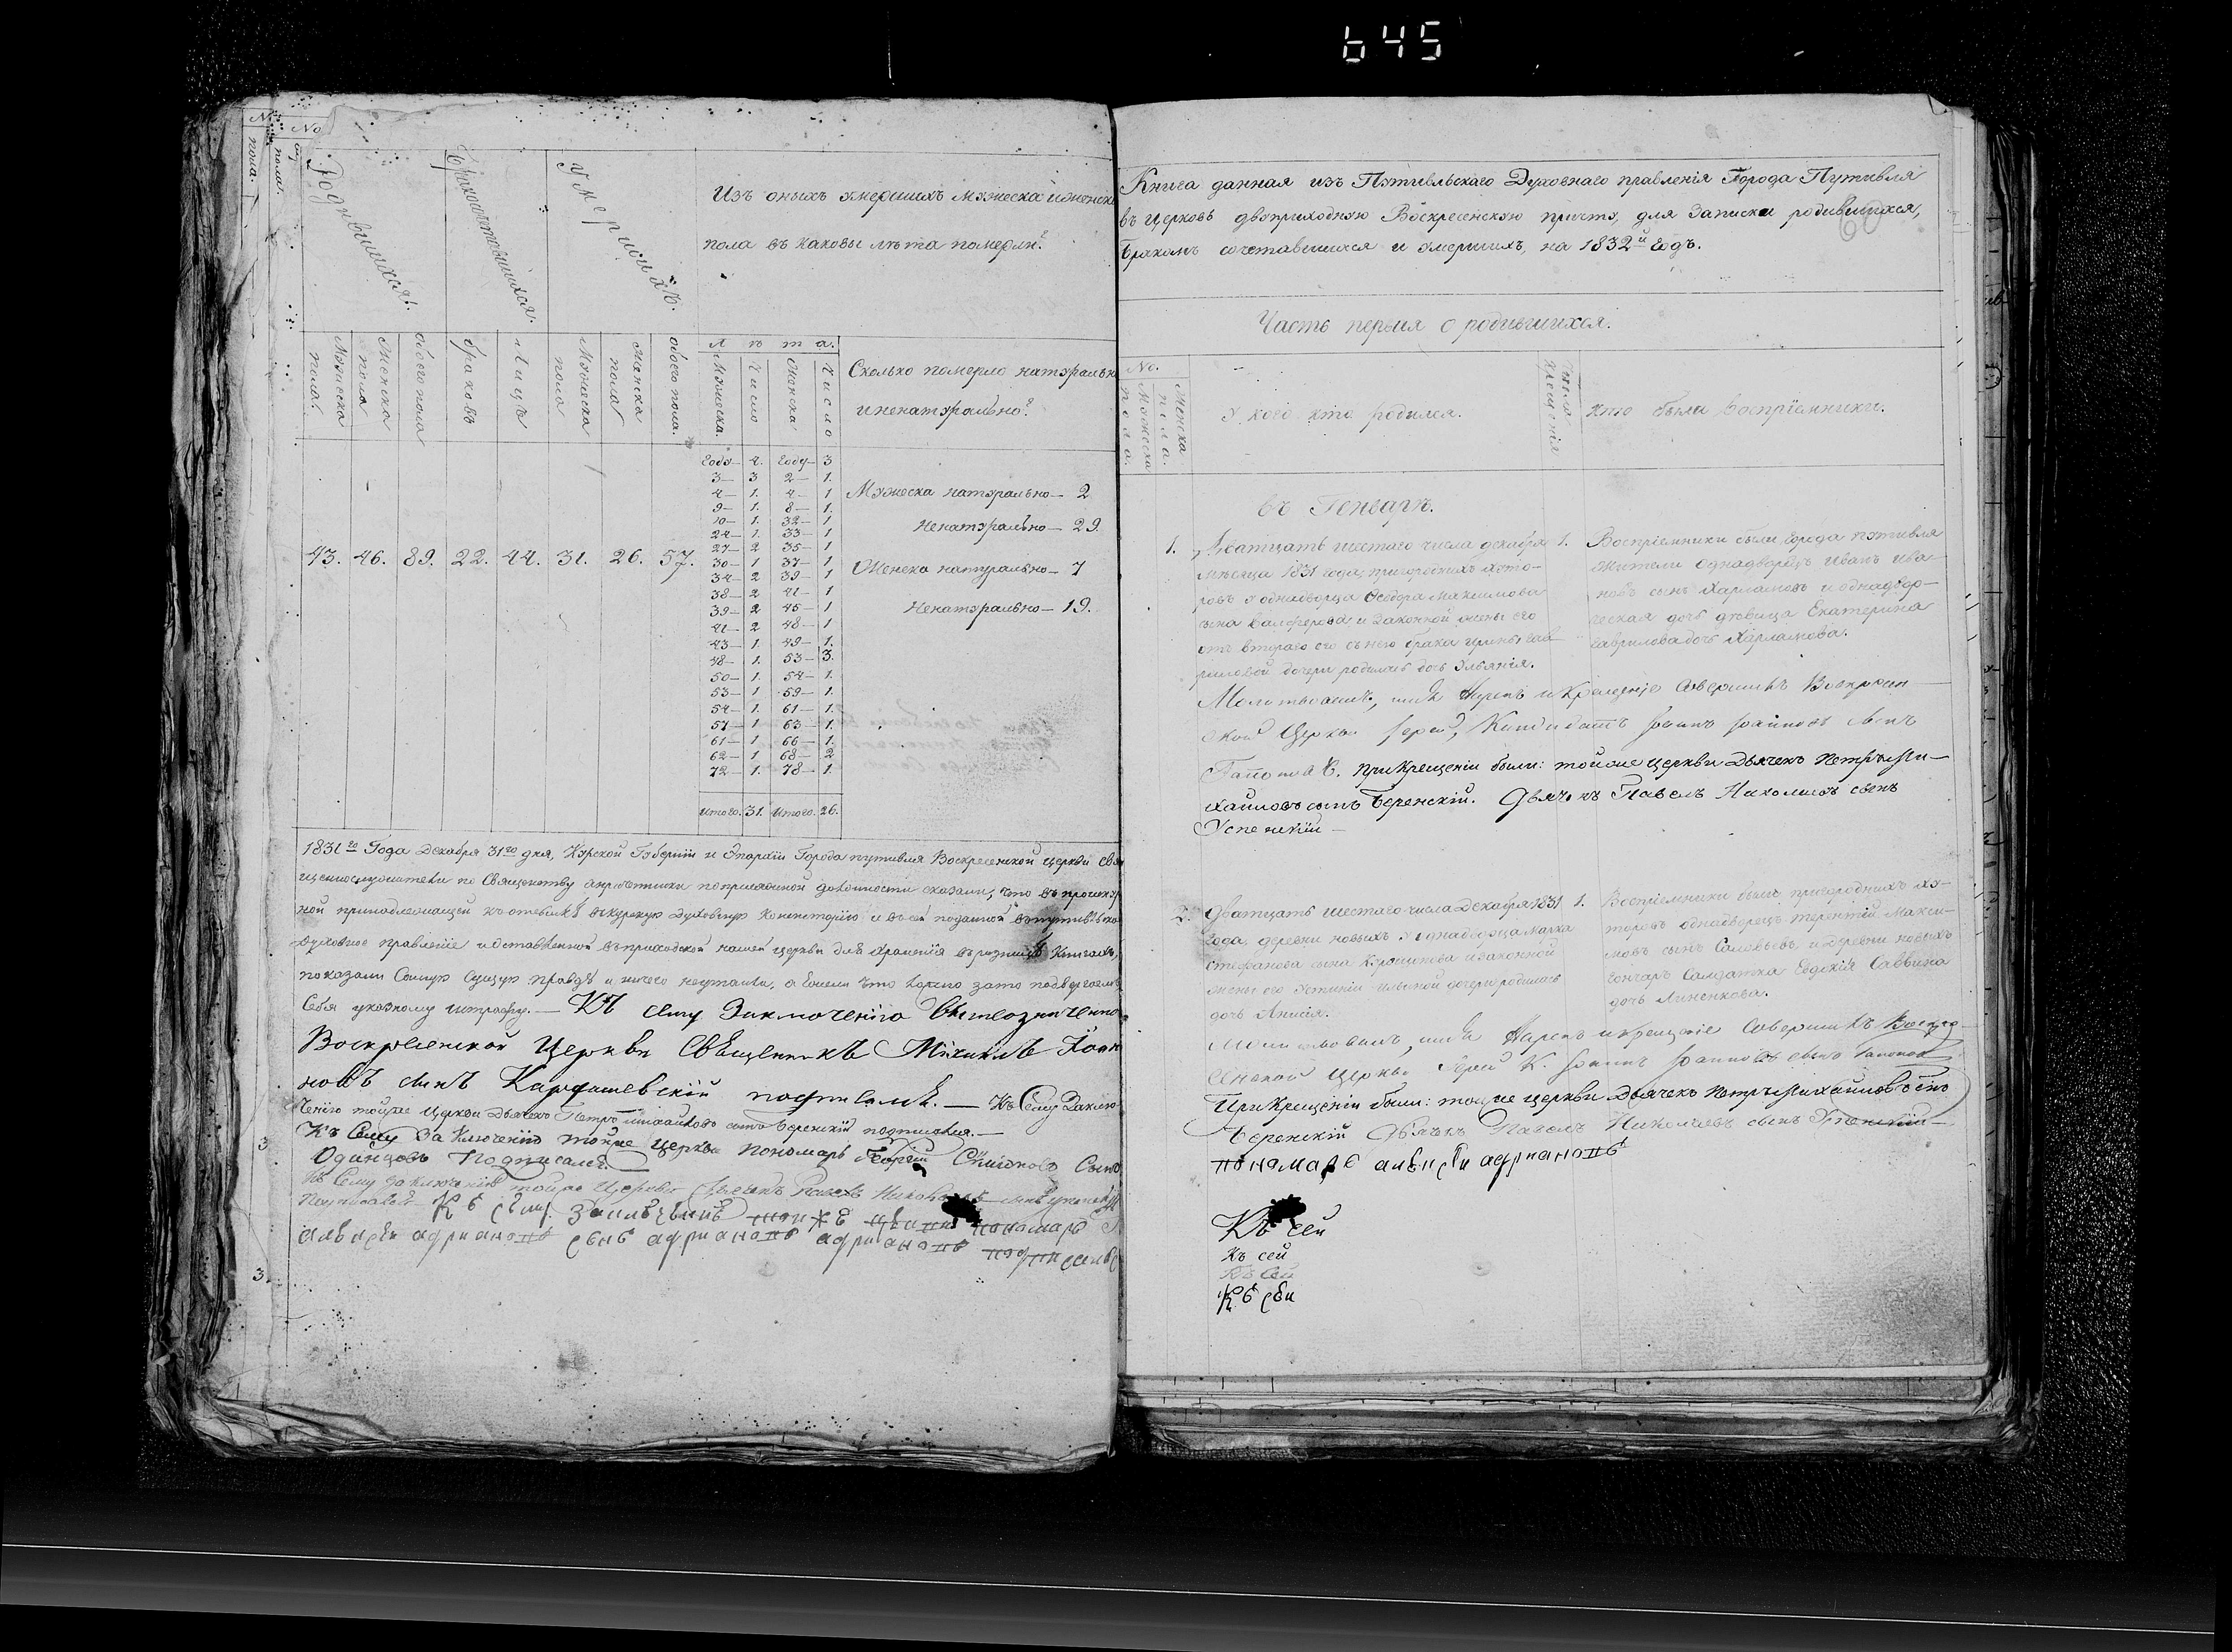 645
Родившихся.
Бракосочетавшихся.
Умершихъ.
Изъ оныхъ умершихъ мужеска и женска
пола въ каковы лѣта померли?
Мужеска пола.
Женска пола
обоего пола
браковъ
Лицъ
Мужеска пола
Женска пола
обоего пола.
Лѣта.
Мужеска.
Число
Женска
Число
Сколько померло натурально
и ненатурально?
43. 46. 89. 22. 44. 31. 26. 57.
Году— 4. Году— 3
3— 3 2— 1.
4— 1. 4— 1
9— 1. 8— 1.
10— 1. 32— 1
24— 1. 33— 1
27— 2 35— 1
30— 1 37— 1
34— 2 39— 1
38— 2 41— 1
39— 2 45— 1
41— 2 48— 1
43— 1. 49— 1.
48— 1. 53— 3.
50— 1. 54— 1.
53— 1 59— 1.
54— 1. 61— 1.
57— 1 63— 1.
61— 1 66— 1.
62— 1 68— 2
72— 1. 78— 1.
Итого. 31. Итого. 26.
Мужеска натурально— 2
Ненатурально— 29.
Женска натурально— 7
Ненатурально— 19.
1831го Года Декабря 31го дня, Курской Губерніи и Епархіи Города путивля Воскресенской церкви свя
щеннослужители по Священству а причетники по присяжной должности сказали, что въ
ной принадлежащей къ отсылкѣ въ курскую Духовную Консисторію и въ сей поданной въ путивльско
Духовное правленіе и оставленной въ приходской нашей церкви для храненія въ ризницѣ Книгахъ,
показали Самую Сущую правду и ничего неутаили, а Ежели что ложно зато подвергаемъ
Себя указному штрафу.— Къ сему Заключенію вышеозначенно
Воскресенской Церкви Священникъ Михаилъ Іоан
новъ сынъ Карташевскій подписалъ.— Къ Сему Заклю
ченію тойже Церкви Дьячекъ Петръ михайловъ сынъ Беренскій подписался.—
Къ Сему Заключенію тойже Церкви Пономарь Георгій сынъ
Одинцовъ Подписалъ.
Къ Сему Заключенію тойже Церкви Дьячекъ Павелъ Николаевъ сынъ
Подписался Къ сему пономарь
алексѣй адриановъ сынъ адриановъ адриановъ подписался
Книга данная изъ Путивльскаго Духовнаго правленія Города Путивля
въ Церковь двоприходную Воскресенскую причту, для Записки родившихся,
Бракомъ сочетавшихся и умершихъ, на 1832й Годъ.
60
Часть первая о родившихся.
No.
Мужеска пола.
Женска пола.
У кого кто родился.
Число крещенія
Кто были воспріемники.
въ Генварѣ.
1. Дватцать шестаго числа декабря 1.
мѣсяца 1831 года, пригородныхъ хуто-
ровъ у однодворца Феодора Максимова
сына и законной жены его
отъ втораго его съ нею брака Ирины Гав
риловой дочери родилась дочь Ульянія.
Воспріемники были, города путивля
жители Однадворецъ Иванъ Ива-
новъ сынъ Харламовъ и однадвор-
ческая дочь дѣвица Екатерина
Гаврилова дочь Харламова.
Молитвовалъ, имя Нарекъ и Крещеніе Совершилъ Воскресен
ской Церкви Іерей, Кандидатъ Іоаннъ Іоанновъ сынъ
Гапоновъ. При Крещеніи были: тойже церкви Дьячекъ Петръ Ми-
хайловъ сынъ Беренскій. Дьячекъ Павелъ Николаевъ сынъ
Успенскій—
2. Дватцать шестаго числа Декабря 1831 1.
года, деревни новыхъ у однадворца Марка
Стефанова сына и законной
жены его Устиніи Ильиной дочери родилась
дочь Анисія.
Воспріемники были пригородныхъ ху-
торовъ однадворецъ терентій Макси-
мовъ сынъ Соловьевъ и Деревни новыхъ
гончаръ Салдатка Евдокія Саввина
дочь Линенкова.
Молитвовалъ, имя Нарекъ и крещеніе Совершилъ Воскре
сенской Церкви Іерей К. Іоаннъ Іоанновъ сынъ Гапоновъ
При Крещеніи были: тойже церкви Дьячекъ Петръ Михайловъ сынъ
Беренскій Дьячекъ Павелъ Николаевъ сынъ Успенскій—
пономарь алексѣй адриановъ
Къ сей
Къ сей
Къ Сей
Къ сей